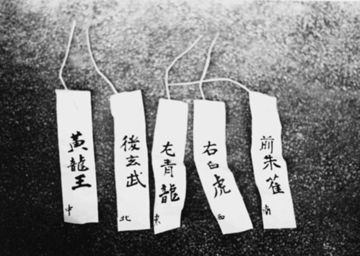 前朱雀
南
右白虎
西
左青龍
東
後玄武
北
黃龍王
中